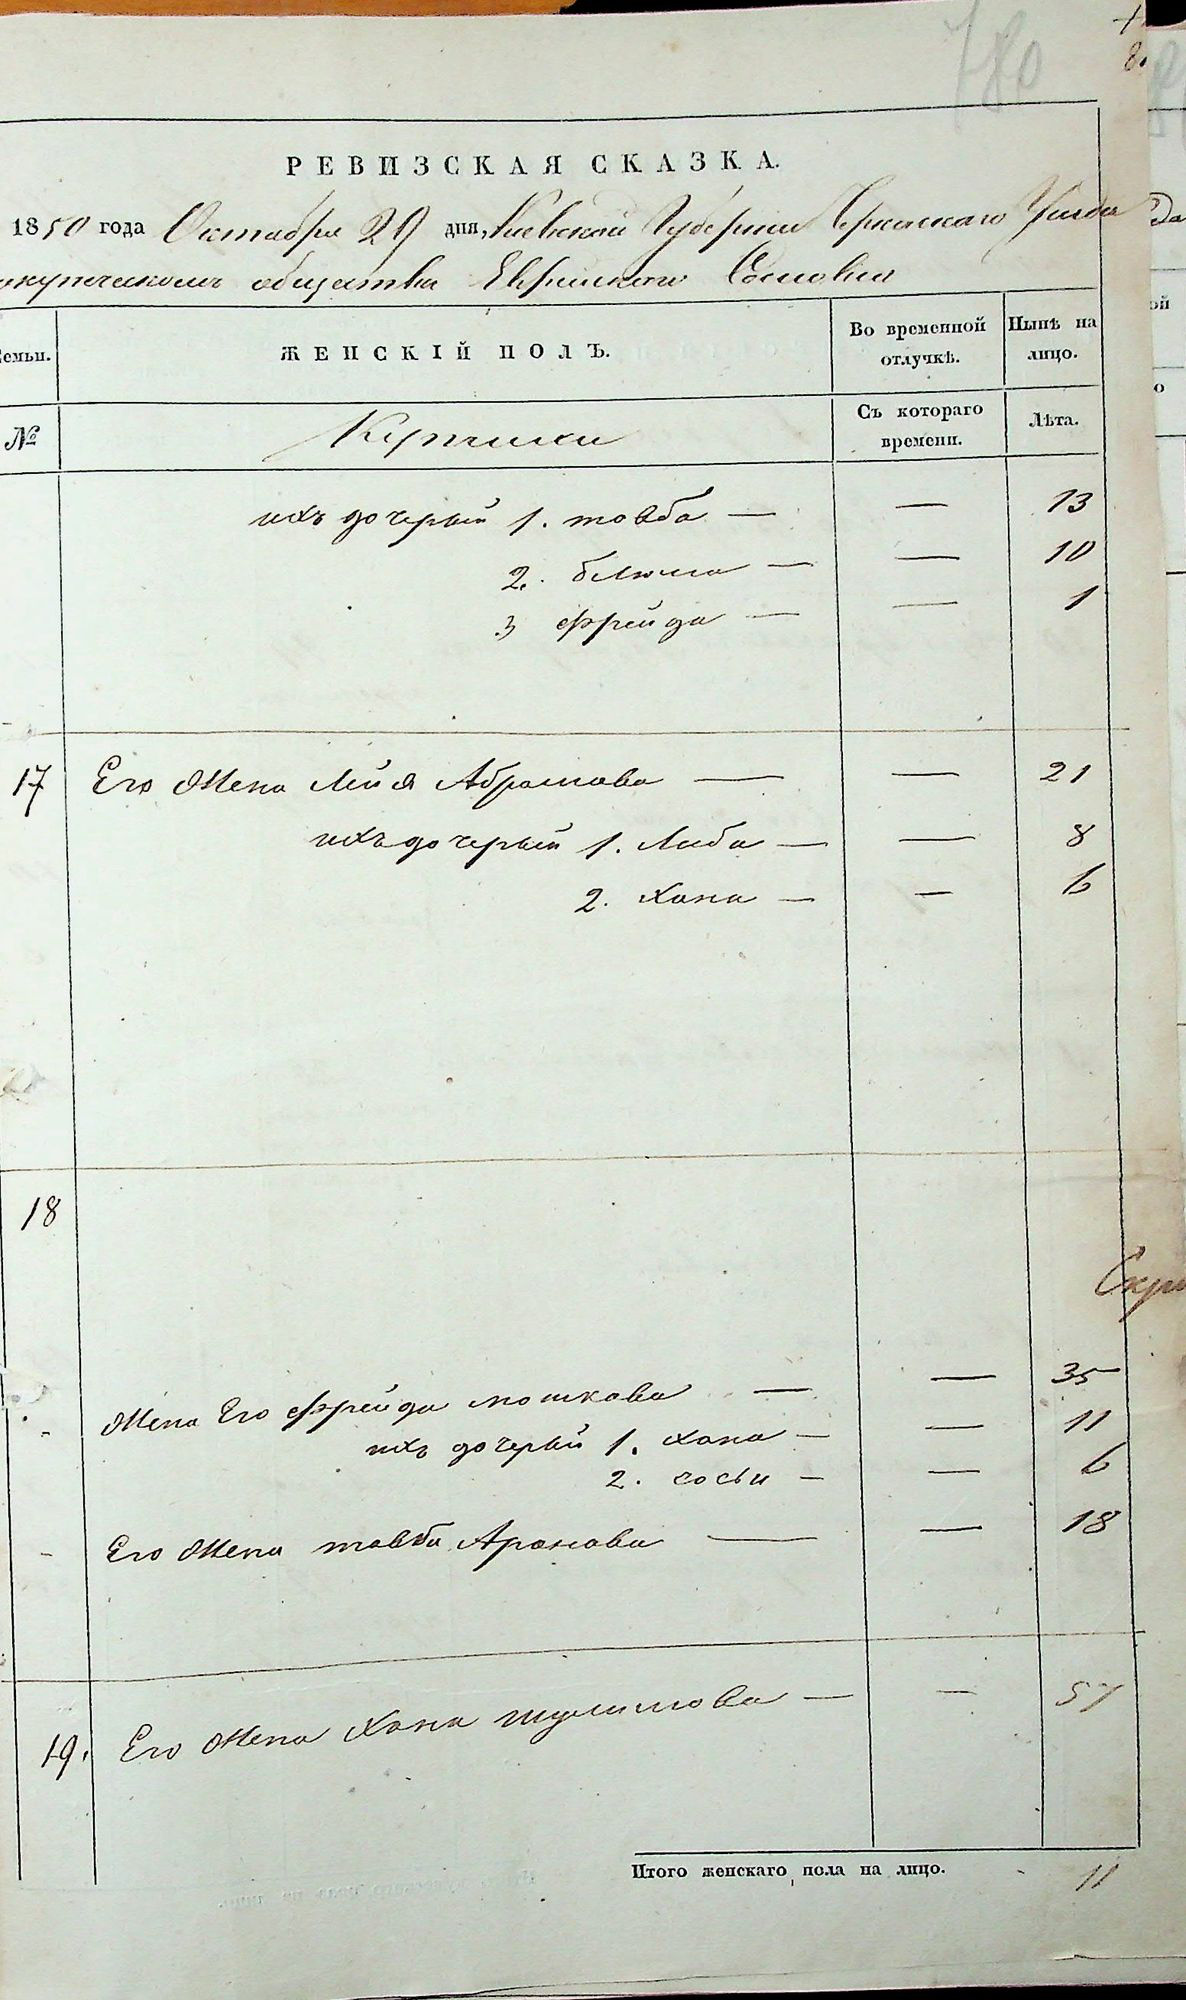 8.
РЕВИЗСКАЯ СКАЗКА.
1850 года Октября 29 дня, Киевской Губернии Черкаскаго Уезда
купеческомъ общества Еврейского Сословия
Семьи. ЖЕНСКІЙ ПОЛЪ. Во временной отлучкѣ. Нынѣ на лицо.
№ Съ котораго времени. Лѣта.
ихъ дочерьи 1. товба — — 13
2. блюма — — 10
3 фрейда — — 1
17 Его Жена Лейя Абрамова — — 21
ихъ дочерьи 1. Либа — — 8
2. Хана — — 6
18
Скрп
- Жена Его фрейда мошкова — — 35
ихъ дочерьи 1. хана — — 11
2. сосьи — — 6
- Его Жена товба Аронова — — 18
19. Его Жена Хана шулимова — — 57
Итого женскаго пола на лицо. 11